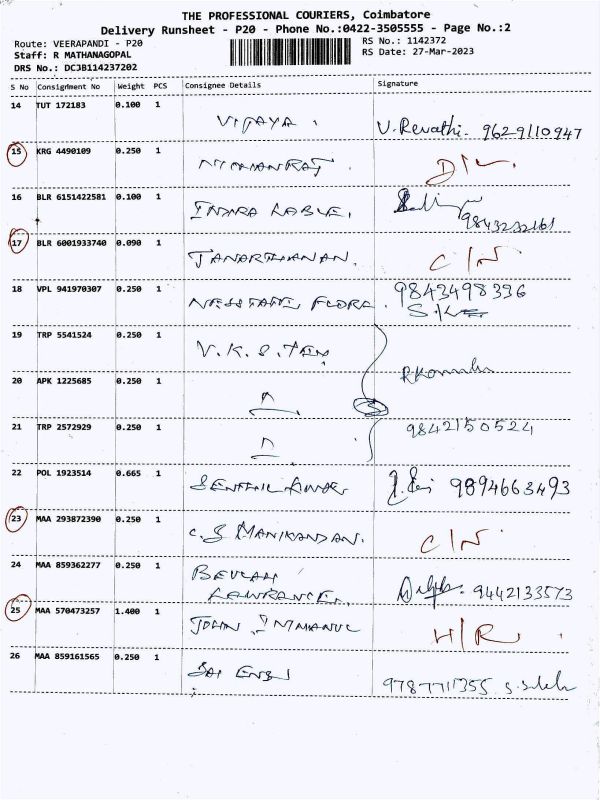 THE PROFESSIONAL COURIERS, Coimbatore
Delivery Runsheet - P20 - Phone No.:0422-3505555 - Page No.:2
Route: VEERAPANDI - P20 RS No.: 1142372
Staff: R MATHANAGOPAL RS Date: 27-Mar-2023
DRS No.: DCJB114237202
S No Consignment No Weight PCS Consignee Details Signature
14 TUT 172183 0.100 1 VIJAYA. V. Revathi. 9629110947
15 KRG 4490109 0.250 1 D/L
16 BLR 6151422581 0.100 1 INDRA LABLE. 9843232161
17 BLR 6001933740 0.090 1 JANARTHANAN. C/N
18 VPL 941970307 0.250 1 FLORA. 9843498396
19 TRP 5541524 0.250 1 V.K.S. TEX
20 APK 1225685 0.250 1 3
21 TRP 2572929 0.250 1 9842150524
22 POL 1923514 0.665 1 SENTHIL KUMAR 9894663493
23 MAA 293872390 0.250 1 C.S MANIKANDAN. C/N
24 MAA 859362277 0.250 1 BEULAH
LAWRANCE. 9442133573
25 MAA 570473257 1.400 1 JOHN IMMANUL H/R
26 MAA 859161565 0.250 1 SAI 9787711355